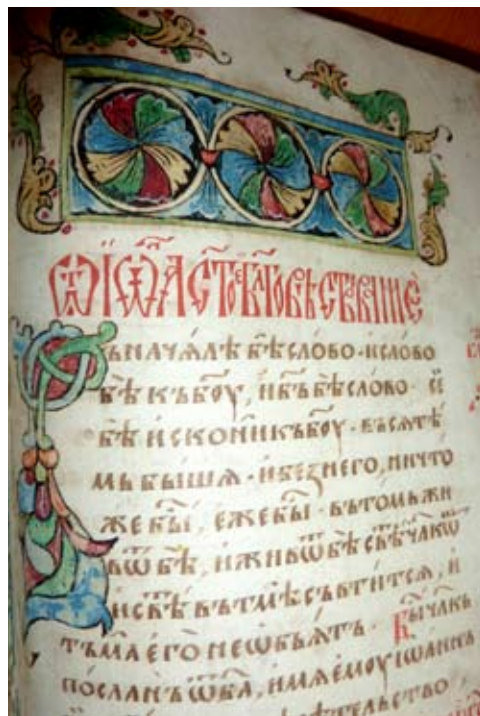 Ѿ ІѠА҃ СТ҃ОЕ БЛ҃ГОВѢСТВОВАНІЕ
Въ начѧлѣ бѣ слово · и слово
бѣ къ бо҃у, и бъ҃ бѣ слово · сі
бѣ искони къ бо҃у · въсѧ тѣ
мь бышѧ · и без него, ничто
же бы̑, еже бы̑ · въ томь жи
вѡ̑ бѣ, и живѡ̑ бѣ свѣ̑ чл҃кѡ̑
и свѣ̑ въ тмѣ съвтитсѧ, и
тъма его не ѡбъѧтъ · Бы̑ чл҃къ
посланъ ѿ ба҃, имѧ емоу іѡаннъ